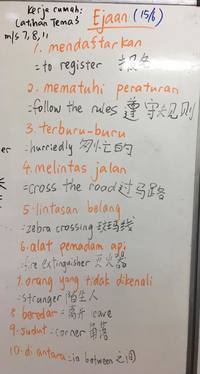 Kerja rumah:
Latihan Tema 3
m/s 7, 8, 11
Ejaan (15/6)
1. mendaftarkan
=to register 报名
2. mematuhi peraturan
=follow the rules 遵守规则
3. terburu-buru
=hurriedly 匆忙的
4. melintas jalan
=cross the road 过马路
5. lintasan belang
=zebra crossing 斑马线
6. alat pemadam api
=fire extinguisher 灭火器
7. orang yang tidak dikenali
=stranger 陌生人
8. beredar = 离开 leave
9. sudut = corner 角落
10. di antara = in between 之间